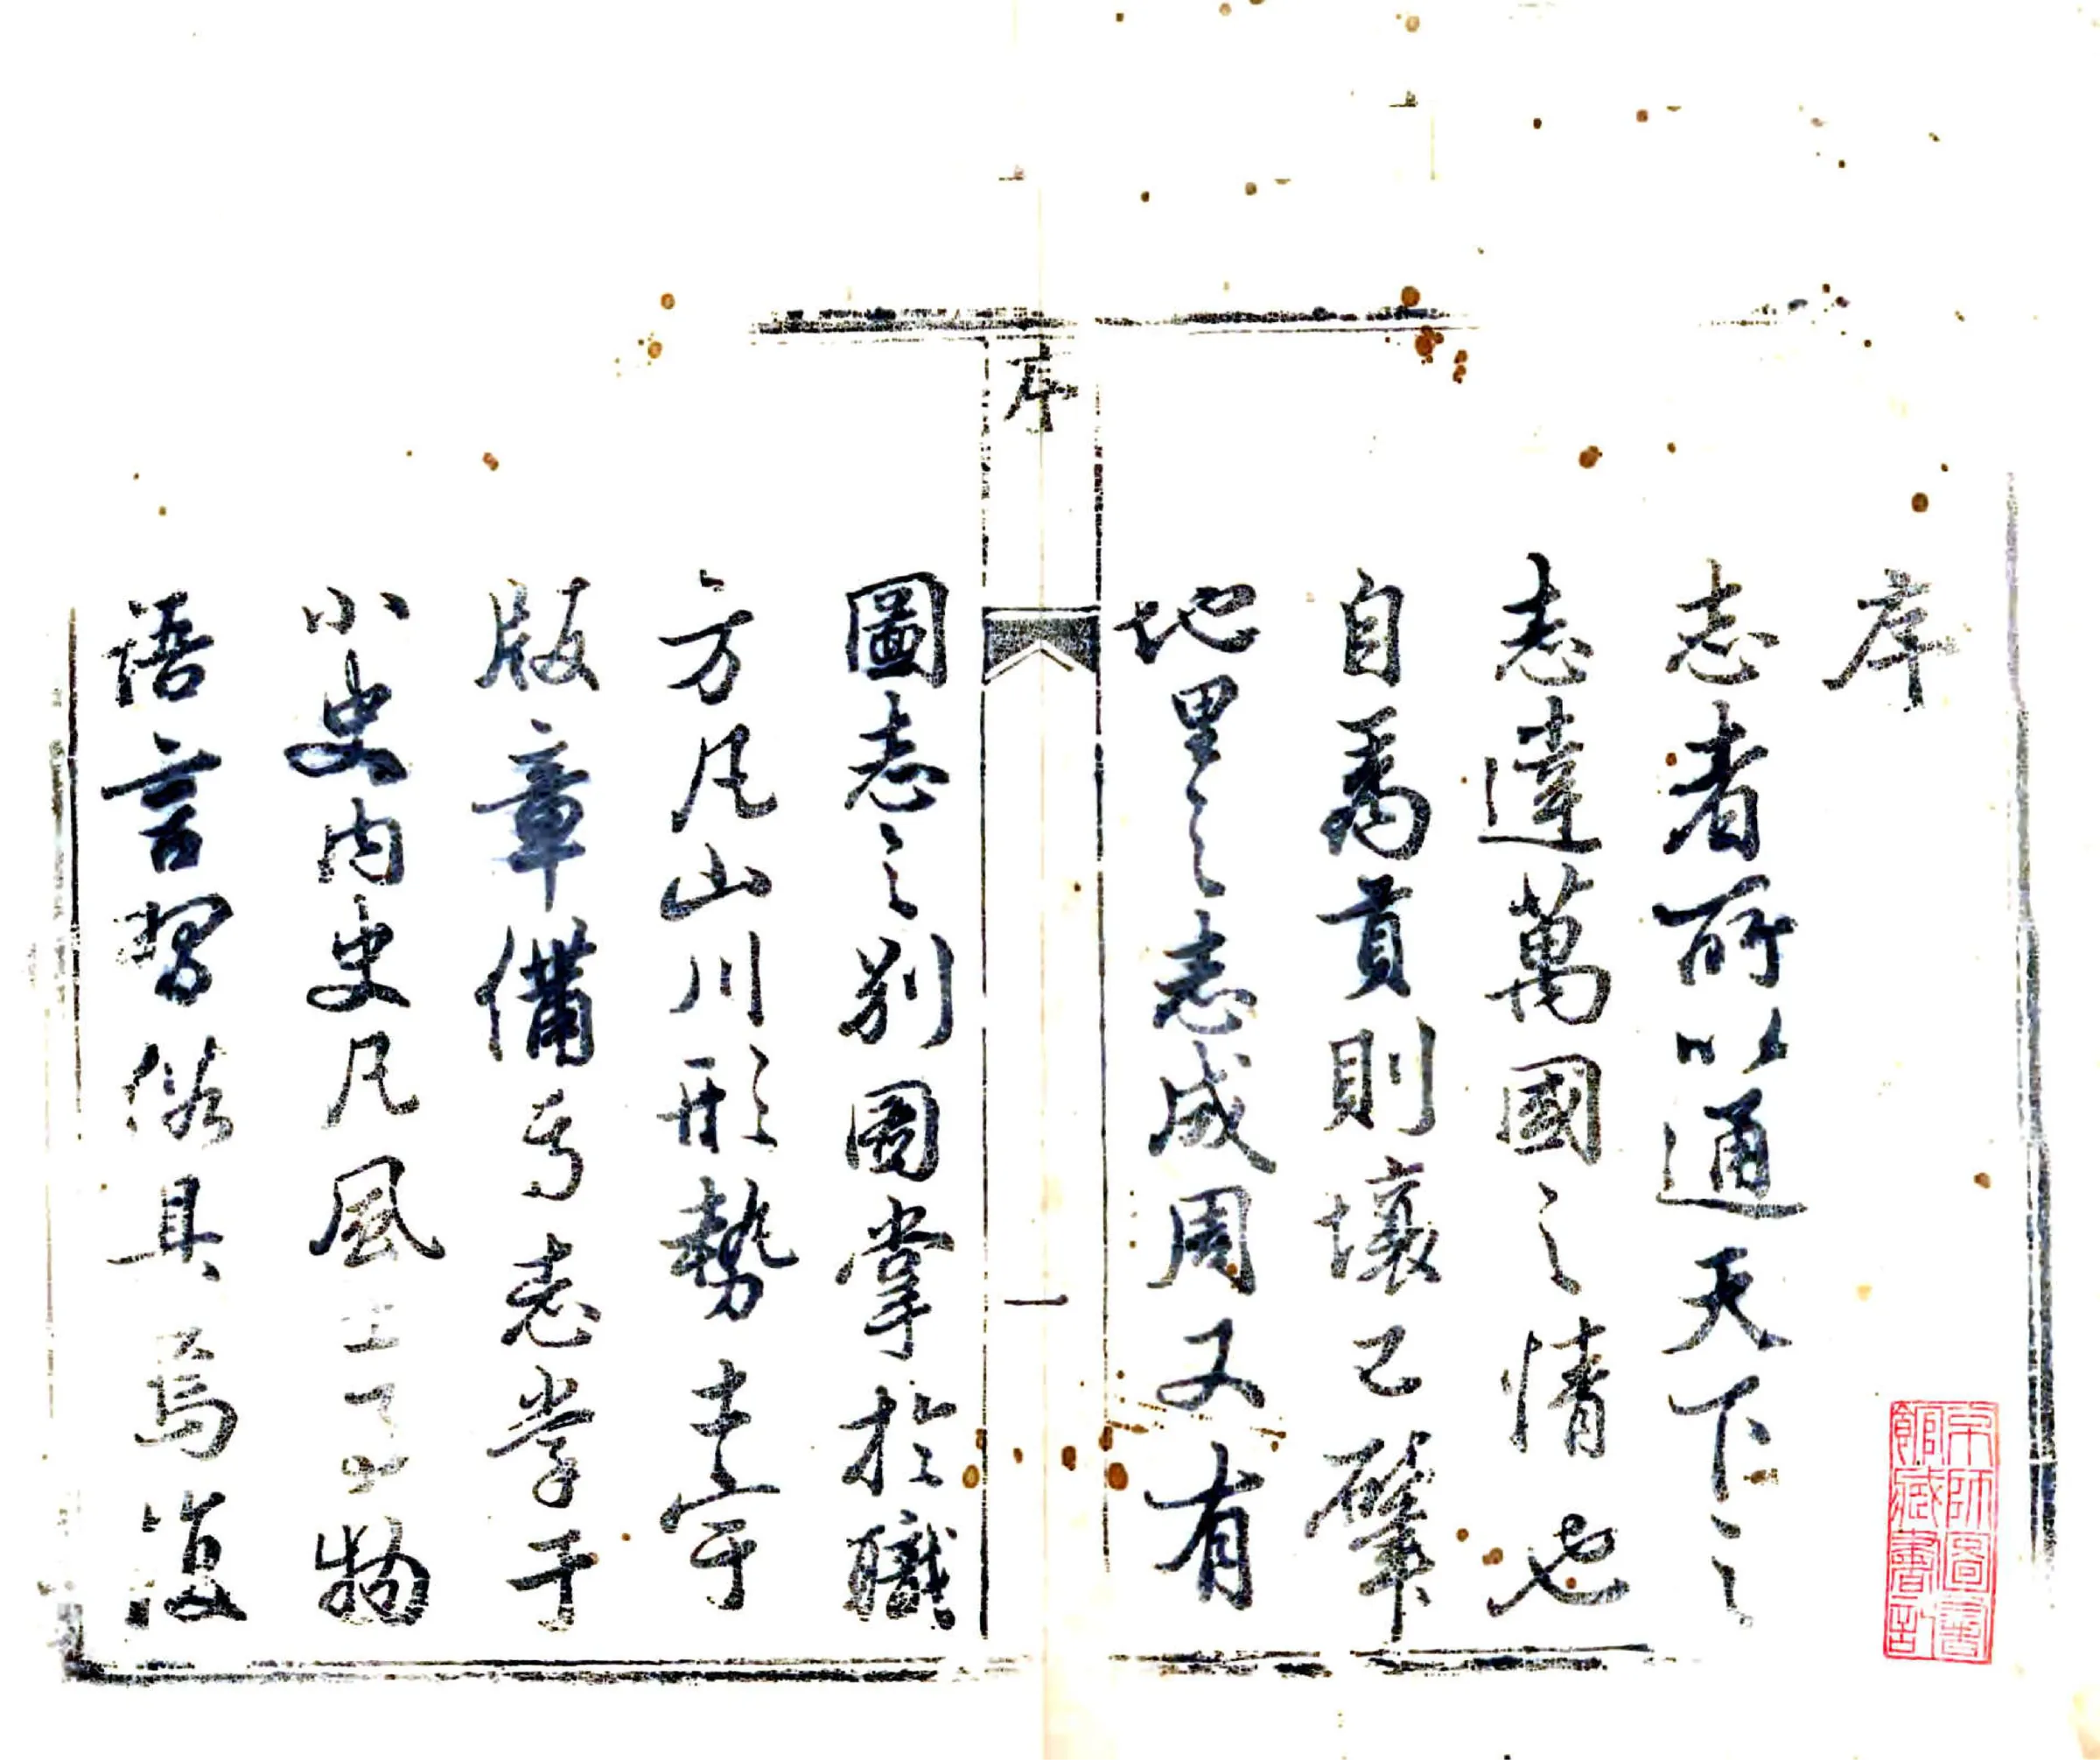 序
志者所以通天下之
志達萬國之情也
自禹貢則壤已肈
地里之志成周又有
序
一
圖志之別圖掌於職
方凡山川形勢土宇
版章備焉志掌于
小史內史凡風土
物
語言習俗具焉復